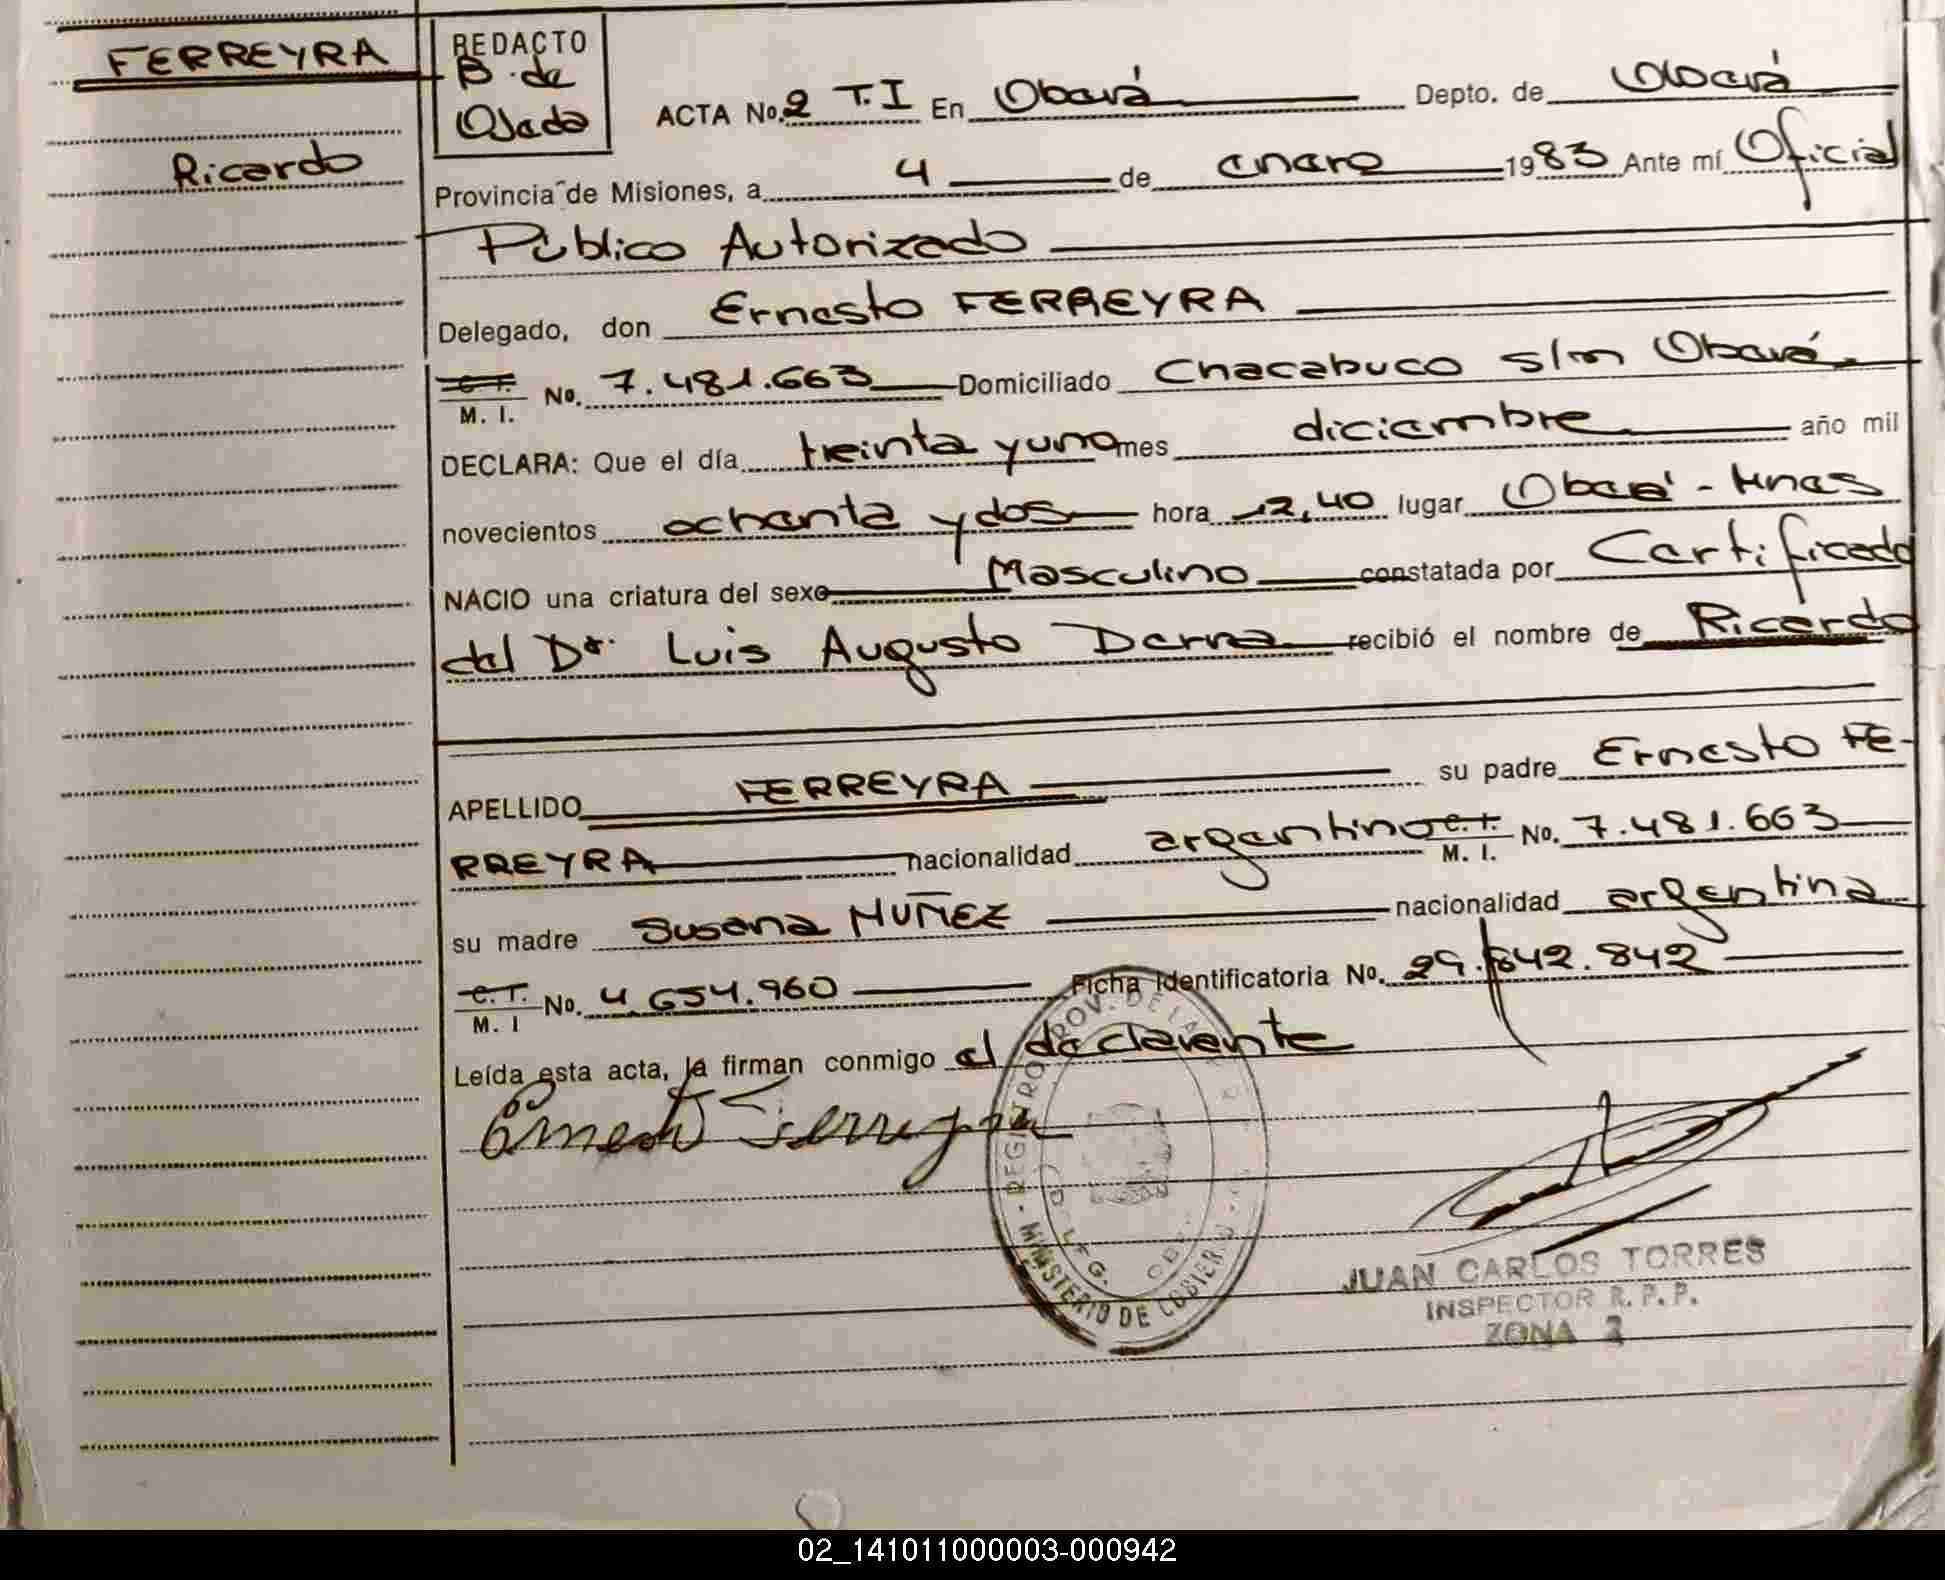 FERREYRA
Ricardo
REDACTO
B. de
Ojeda
ACTA No. 2 T.I En Oberá Depto. de Oberá
Provincia de Misiones, a 4 de enero 1983 Ante mí Oficial
Público Autorizado
Delegado, don Ernesto FERREYRA
C.I. M. I. No. 7.481.663 Domiciliado Chacabuco s/n Oberá
DECLARA: Que el día treinta y uno mes diciembre año mil
novecientos ochenta y dos hora 12,40 lugar Oberá - Mnes
NACIO una criatura del sexo Masculino constatada por Certificado
del Dr. Luis Augusto Derna recibió el nombre de Ricardo
APELLIDO FERREYRA su padre Ernesto FE-
RREYRA nacionalidad argentino C.I. M. I. No. 7.481.663
su madre Susana NUÑEZ nacionalidad argentina
C.I. M. I No. 4.654.960 Ficha Identificatoria No. 29.842.842
Leída esta acta, la firman conmigo el declarante
Ernesto Ferreyra
REGISTRO PROV. DE LA
MINISTERIO DE GOBIERNO
JUAN CARLOS TORRES
INSPECTOR R. P. P.
ZONA 2
02_141011000003-000942